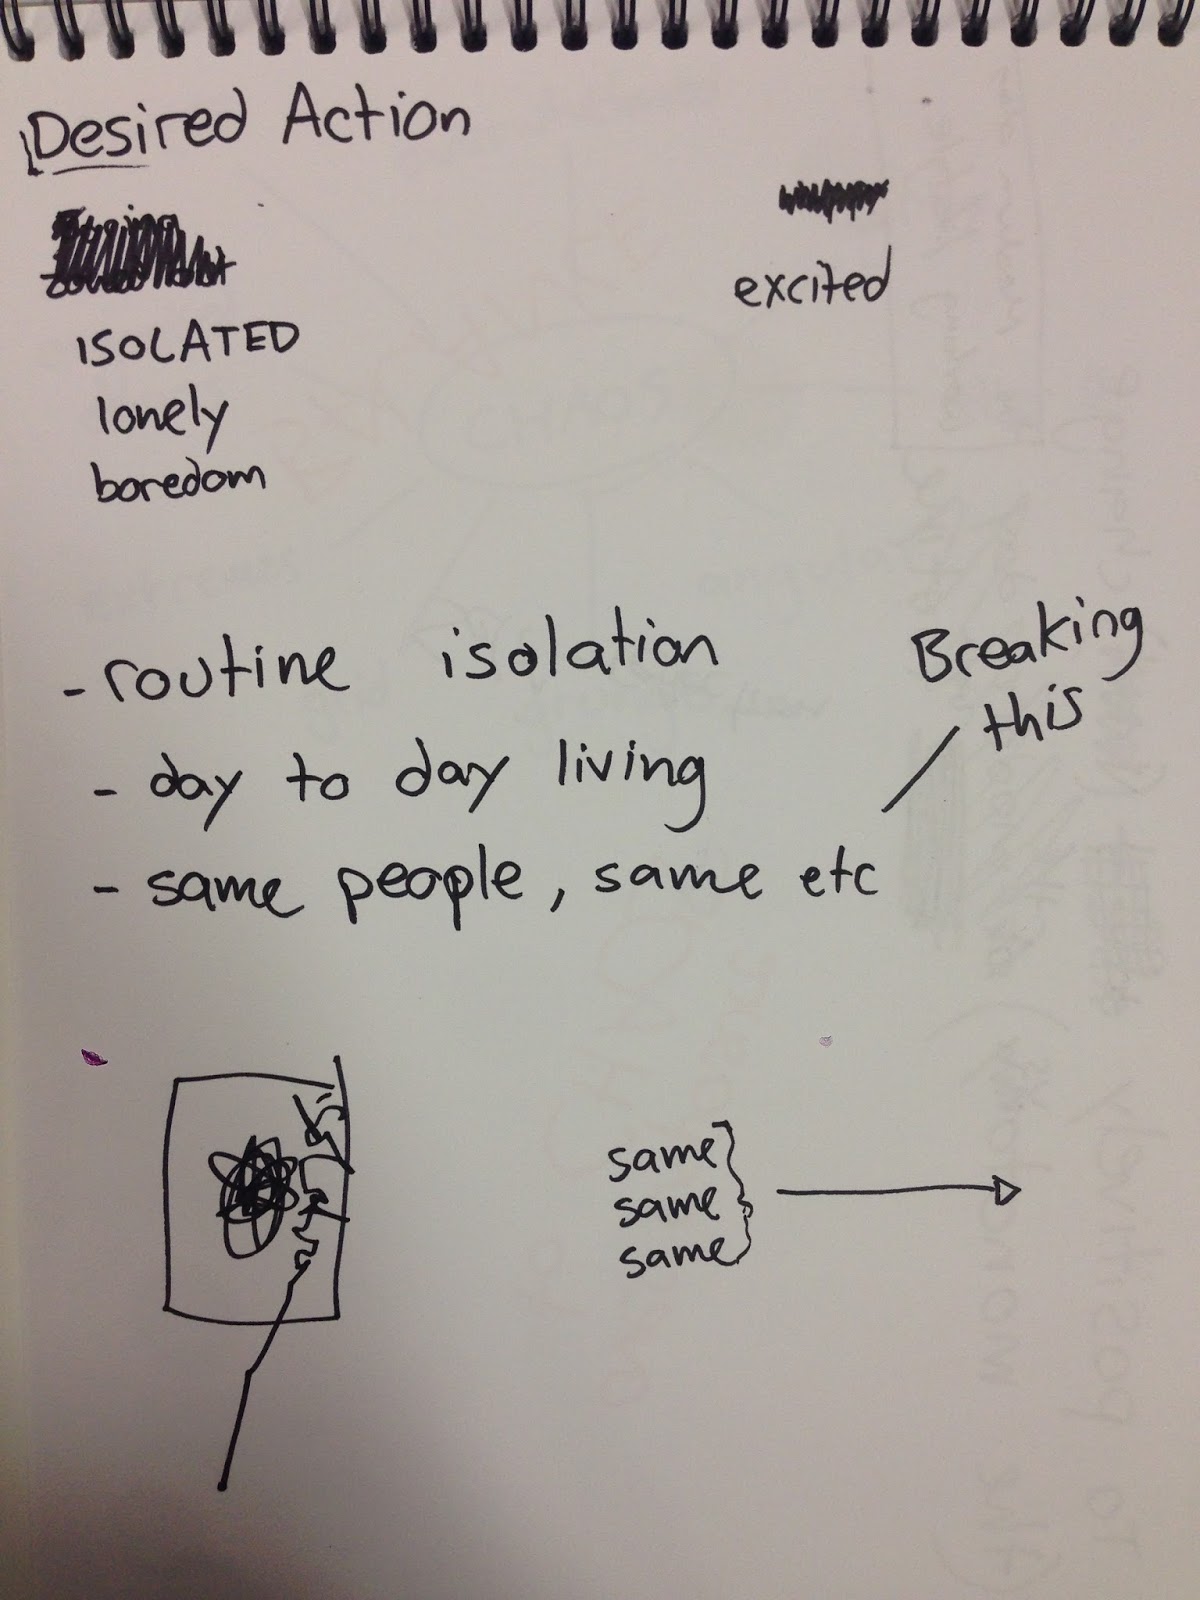 Desired Action
excited
ISOLATED
lonely
boredom
- routine isolation
- day to day living
- same people, same etc
Breaking
this
same
same
same